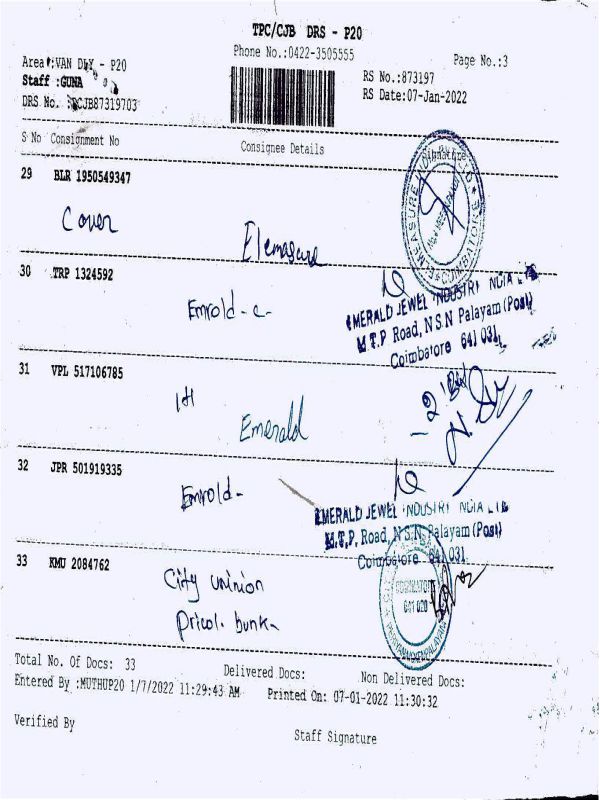 TPC/CJB DRS - P20
Phone No.:0422-3505555
Page No.:3
Area :VAN DLY - P20
Staff :GUNA
RS No.:873197
RS Date:07-Jan-2022
DRS No. :TCJB87319703
S No Consignment No Consignee Details Signature
29 BLR 1950549347
Cover
Elemasure
30 TRP 1324592
Emrold - c -
EMERALD JEWEL INDUSTRY INDIA LTD
M.T.P Road, N.S.N Palayam (Post)
Coimbatore 641 031.
31 VPL 517106785
Emerald
32 JPR 501919335
Emrold -
EMERALD JEWEL INDUSTRY INDIA LTD
M.T.P. Road, N.S.N. Palayam (Post)
Coimbatore 641 031
33 KMU 2084762
City uninion
Pricol. bunk
COIMBATORE
641 020
Total No. Of Docs: 33 Delivered Docs: Non Delivered Docs:
Entered By :MUTHUP20 1/7/2022 11:29:43 AM Printed On: 07-01-2022 11:30:32
Verified By
Staff Signature